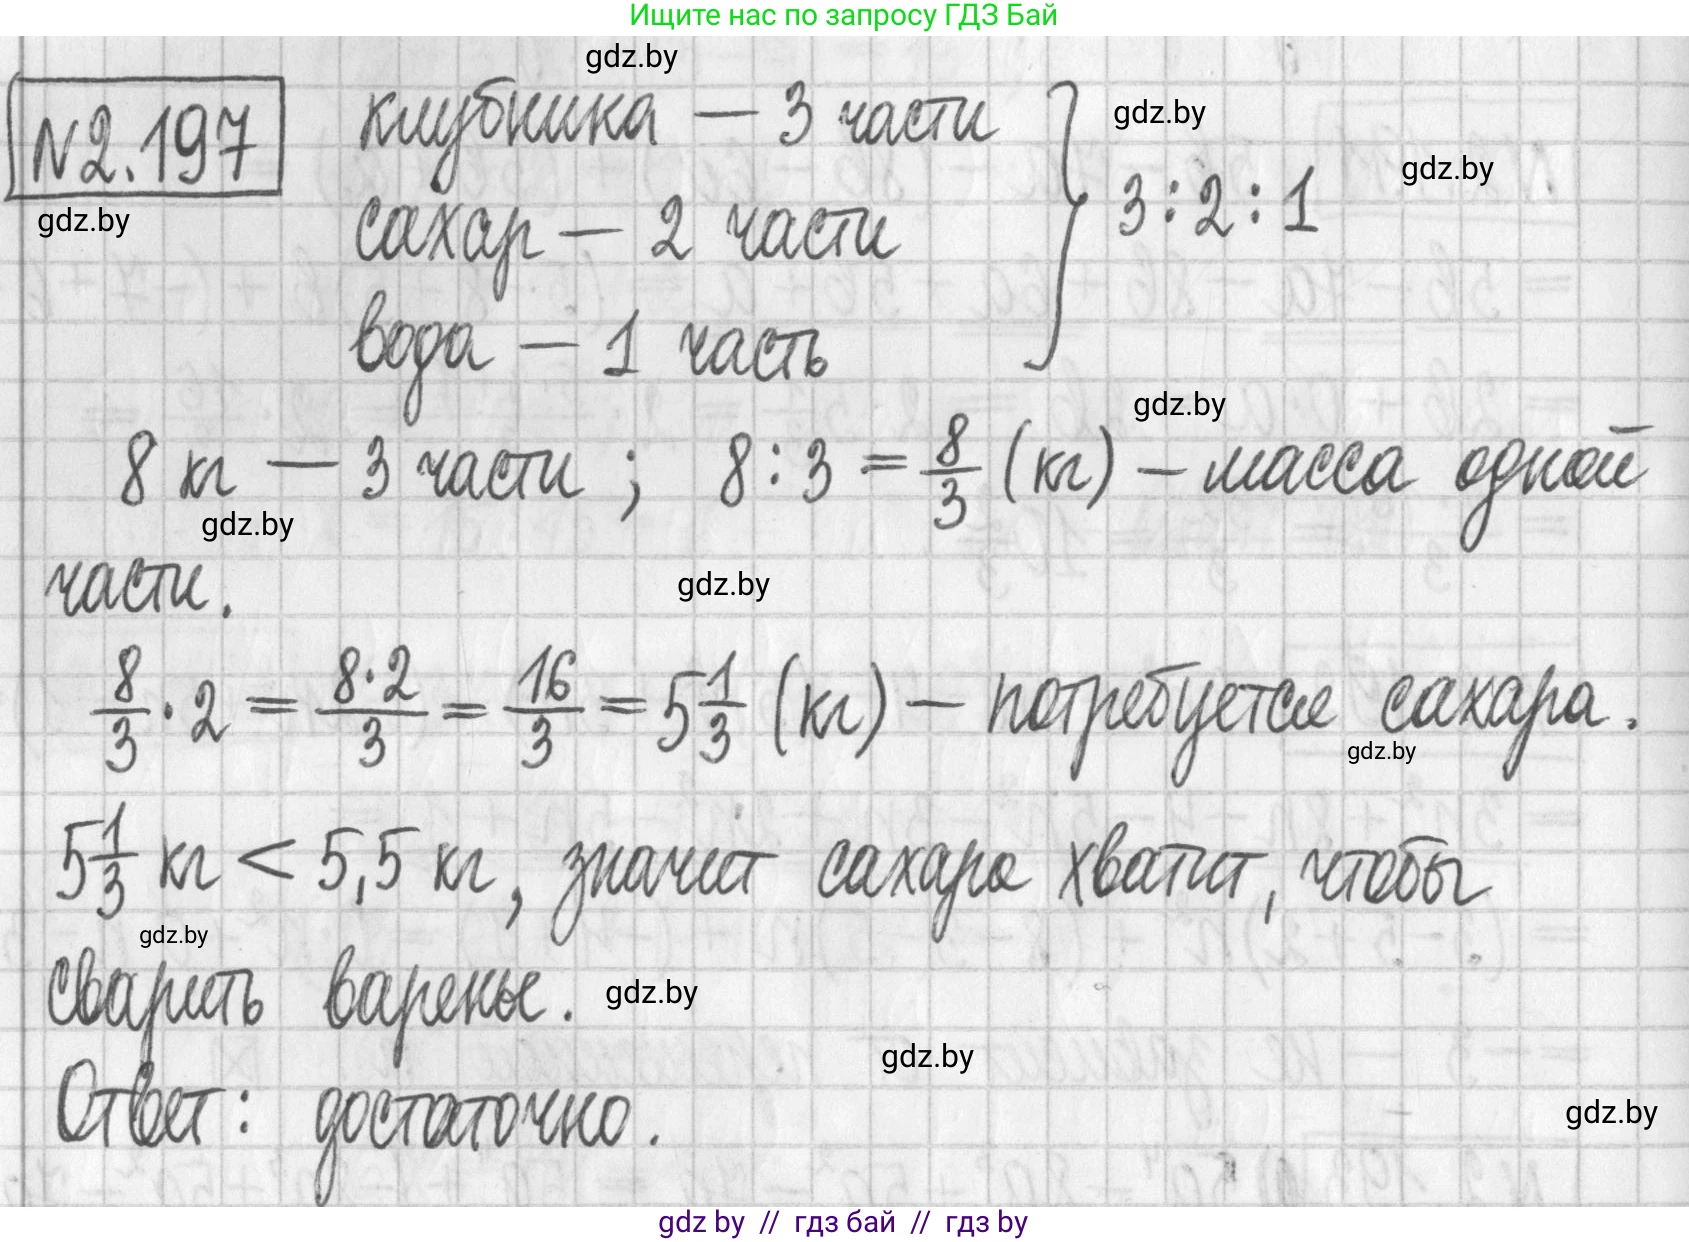 Ищите нас по запросу ГДЗ Бай
gdz.by
№2.197 клубника — 3 части
gdz.by
gdz.by
сахар — 2 части
3 : 2 : 1
gdz.by
вода — 1 часть
gdz.by
8 кг — 3 части ; 8 : 3 = 8/3 (кг) — масса одной
gdz.by
части.
gdz.by
8/3 · 2 = 8·2/3 = 16/3 = 5 1/3 (кг) — потребуется сахара.
gdz.by
5 1/3 кг < 5,5 кг, значит сахара хватит, чтобы
gdz.by
сварить варенье.
gdz.by
gdz.by
Ответ: достаточно.
gdz.by
gdz by // гдз бай // гдз by